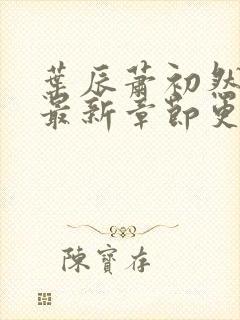 葉辰蕭初然
最新章節更
陳寶存